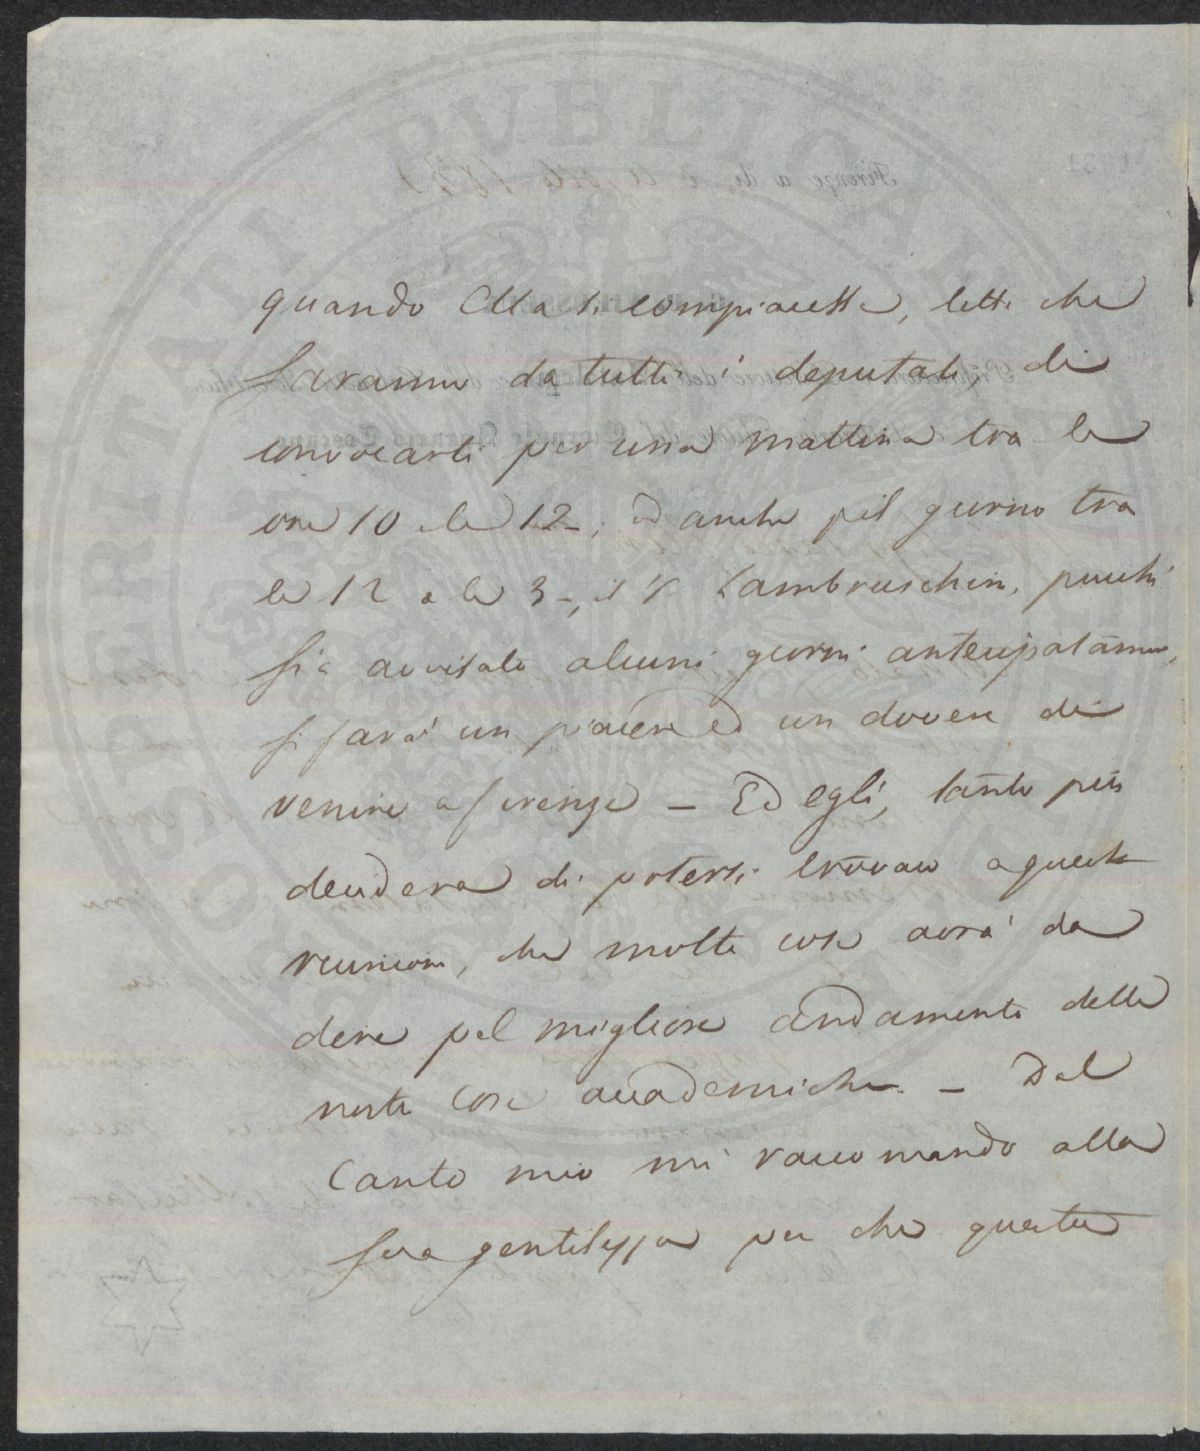 PROSPERITATI PVBLICAE
quando Ella si compiacesse, letti che
saranno da tutti i deputati, di
convocarli per una mattina tra le
ore 10 e le 12 -, od anche pel giorno tra
le 12 e le 3 -, il Sr Lambruschini, purchè
sia avvisato alcuni giorni anticipatamte,
si farà un piacere ed un dovere di
venire a firenze - Ed egli, tanto più
desidera di potersi trovare a queste
reunioni, che molte cose avrà da
dire pel migliore andamento delle
nostre cose accademiche - Dal
Canto mio mi raccomando alla
sua gentilezza per che queste